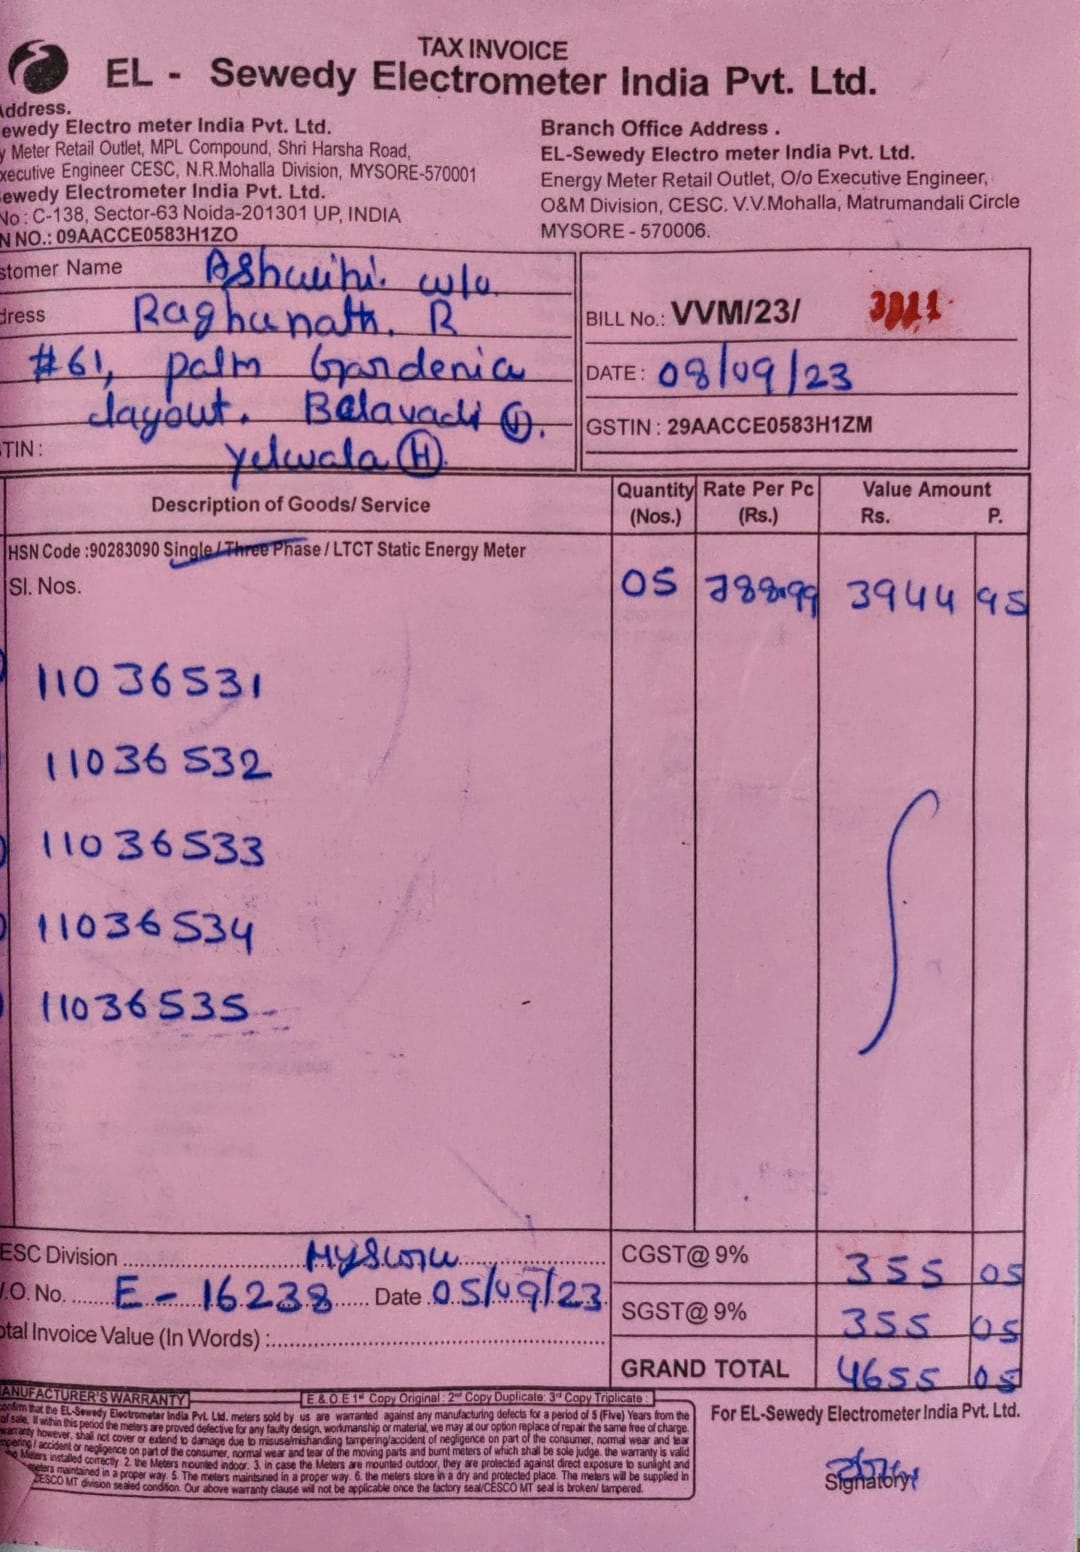 TAX INVOICE
EL - Sewedy Electrometer India Pvt. Ltd.
Address.
ewedy Electro meter India Pvt. Ltd.
y Meter Retail Outlet, MPL Compound, Shri Harsha Road,
xecutive Engineer CESC, N.R.Mohalla Division, MYSORE-570001
ewedy Electrometer India Pvt. Ltd.
No : C-138, Sector-63 Noida-201301 UP, INDIA
N NO.: 09AACCE0583H1ZO
Branch Office Address .
EL-Sewedy Electro meter India Pvt. Ltd.
Energy Meter Retail Outlet, O/o Executive Engineer,
O&M Division, CESC. V.V.Mohalla, Matrumandali Circle
MYSORE - 570006.
stomer Name Ashwini. w/o
dress Raghunath. R
#61, palm Gardenia
layout. Belavadi
TIN : yelwala (H).
BILL No.: VVM/23/
DATE : 08/09/23
GSTIN : 29AACCE0583H1ZM
Description of Goods/ Service Quantity (Nos.) Rate Per Pc (Rs.) Value Amount Rs. P.
HSN Code :90283090 Single / Three Phase / LTCT Static Energy Meter
Sl. Nos. 05 788.99 3944 95
11036531
11036532
11036533
11036534
11036535
ESC Division Mysore CGST@ 9% 355 05
.O. No. E - 16238 Date 05/09/23 SGST@ 9% 355 05
otal Invoice Value (In Words) : GRAND TOTAL 4655 05
ANUFACTURER'S WARRANTY E & O E 1st Copy Original : 2nd Copy Duplicate: 3rd Copy Triplicate :
onfirm that the EL-Sewedy Electrometer India Pvt. Ltd. meters sold by us are warranted against any manufacturing defects for a period of 5 (Five) Years from the
of sale, If within this period the meters are proved defective for any faulty design, workmanship or material, we may at our option replace of repair the same free of charge.
warranty however, shall not cover or extend to damage due to misuse/mishandling tampering/accident of negligence on part of the consumer, normal wear and tear
mpering / accident or negligence on part of the consumer, normal wear and tear of the moving parts and burnt meters of which shall be sole judge. the warranty is valid
the Meters installed correctly. 2. the Meters mounted indoor. 3. in case the Meters are mounted outdoor, they are protected against direct exposure to sunlight and
meters maintained in a proper way. 5. The meters maintained in a proper way. 6. the meters store in a dry and protected place. The meters will be supplied in
CESCO MT division sealed condition. Our above warranty clause will not be applicable once the factory seal/CESCO MT seal is broken/ tampered.
For EL-Sewedy Electrometer India Pvt. Ltd.
Signatory